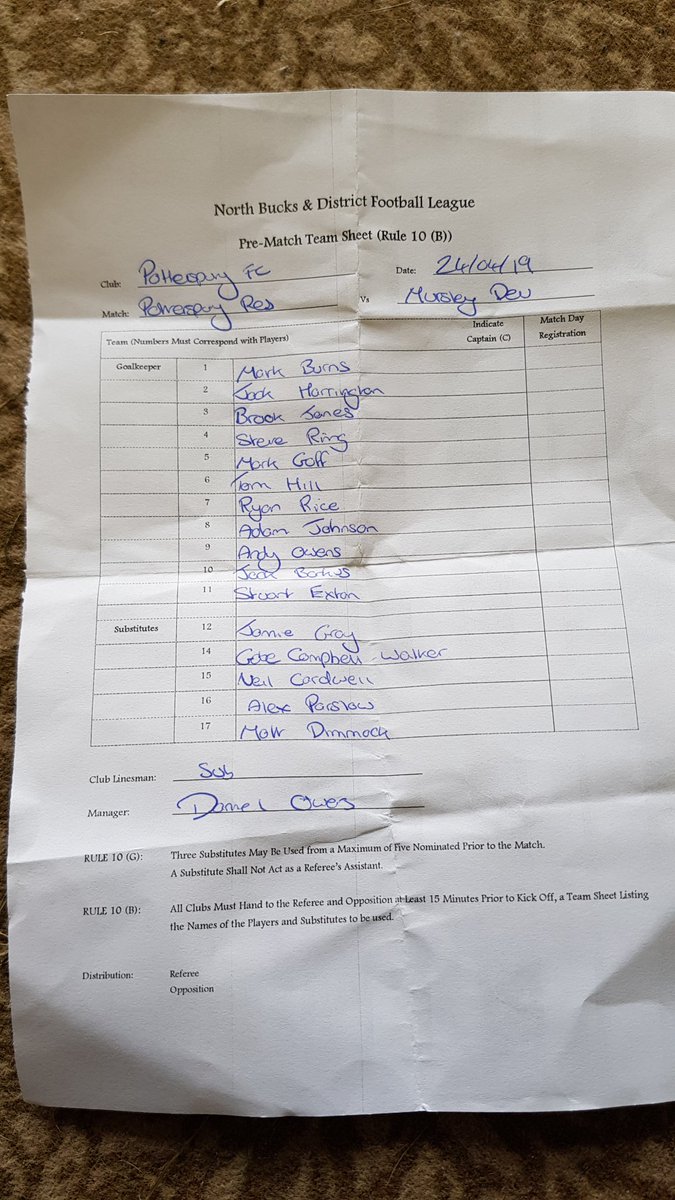 North Bucks & District Football League
Pre-Match Team Sheet (Rule 10 (B))
Club: Potterspury FC Date: 24/04/19
Match: Potterspury Res Vs Mursley Dev
Team (Numbers Must Correspond with Players) Indicate Captain (C) Match Day Registration
Goalkeeper 1 Mark Burns
2 Jack Harrington
3 Brook Jones
4 Steve Ring
5 Mark Goff
6 Tom Hill
7 Ryan Rice
8 Adam Johnson
9 Andy Owens
10 Jack
11 Stuart Exton
Substitutes 12 Jamie Gray
14 Campbell-Walker
15 Neil Cardwell
16 Alex Parslow
17 Matt Dimmock
Club Linesman: Sub
Manager: Daniel Owens
RULE 10 (G): Three Substitutes May Be Used from a Maximum of Five Nominated Prior to the Match.
A Substitute Shall Not Act as a Referee's Assistant.
RULE 10 (B): All Clubs Must Hand to the Referee and Opposition at Least 15 Minutes Prior to Kick Off, a Team Sheet Listing
the Names of the Players and Substitutes to be used.
Distribution: Referee
Opposition